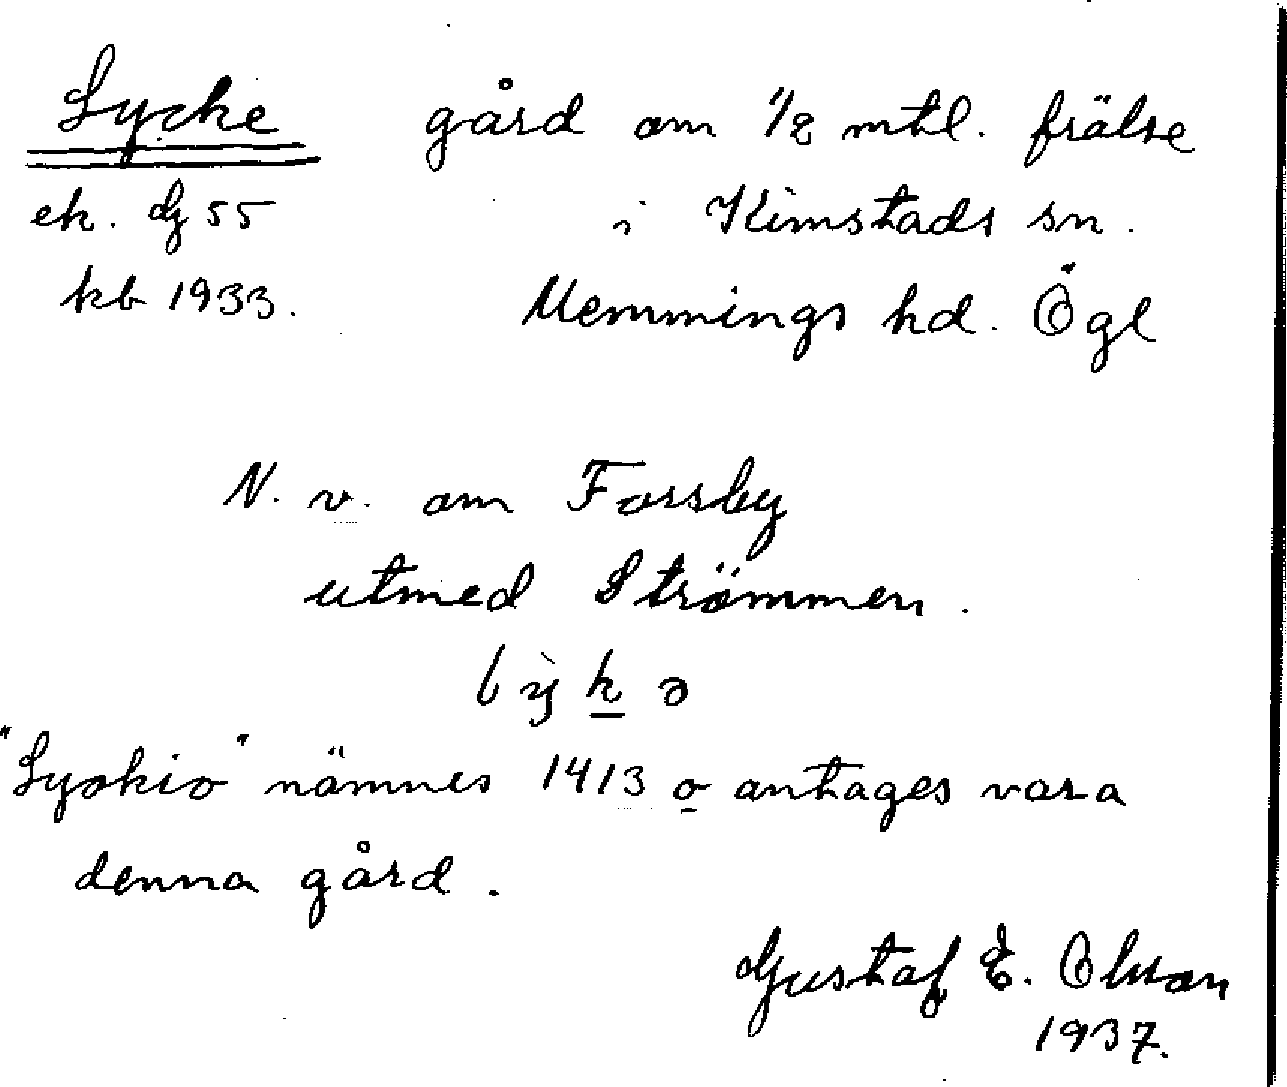 Lycke gård om 1/2 mtl. frälse
ek. dg 55 i Kimstads sn.
kb 1933. Memmings hd. Ögl
N. v. om Forsby
utmed Strömmen.
"Lyskio" nämnes 1413 o antages vara
denna gård.
Gustaf E. Olsson
1937.